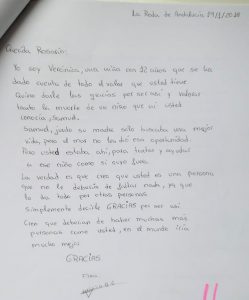 La Roda de Andalucía 29/1/20
Querida Rosario:
Yo soy Verónica, una niña con 12 años que se ha
dado cuenta de todo el valor que usted tiene.
Quiero darle las gracias por ser así y valorar
tanto la muerte de un niño que ni usted
conocía, Samuel.
Samuel, junto su madre sólo buscaba una mejor
vida, pero el mar no les dió esa oportunidad.
Pero usted estaba ahí, para tratar y ayudar
a ese niño como si suyo fuera.
La verdad es que creo que usted es una persona
que no le debería de faltar nada, ya que
lo da todo por otras personas.
Simplemente decirle GRACIAS por ser así.
Creo que deberían de haber muchas más
personas como usted, en el mundo iría
mucho mejor.
GRACIAS
Fdo: